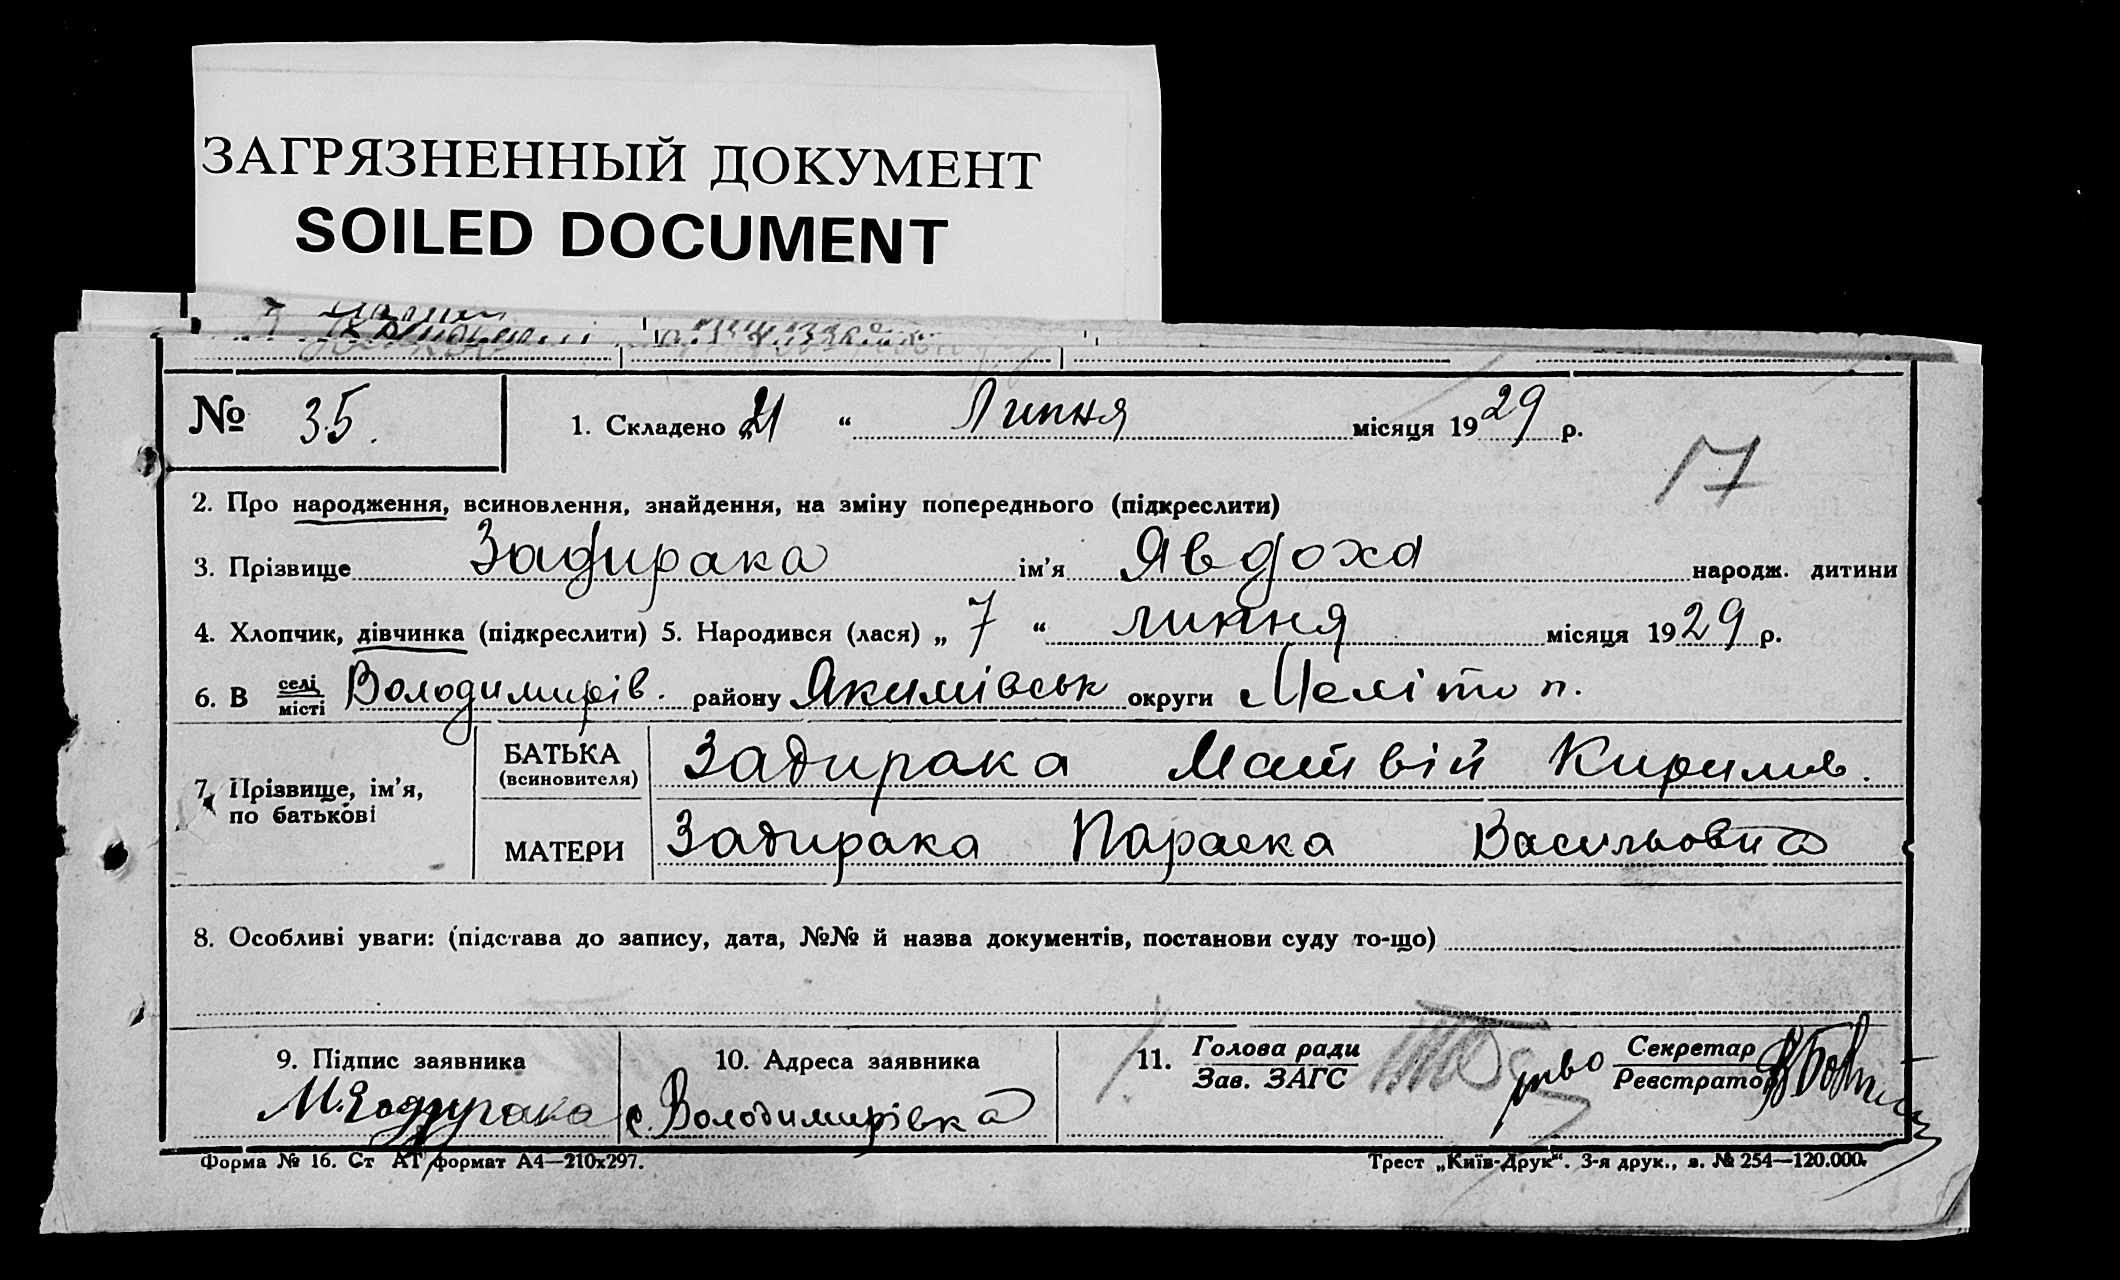 ЗАГРЯЗНЕННЫЙ ДОКУМЕНТ
SOILED DOCUMENT
№ 35. 1. Складено „21“ Липня місяця 1929 р.
17
2. Про народження, всиновлення, знайдення, на зміну попереднього (підкреслити)
3. Прізвище Задирака ім’я Явдоха народж. дитини
4. Хлопчик, дівчинка (підкреслити) 5. Народився (лася) „7“ липня місяця 1929 р.
6. В селі Володимирів. району Якимівськ округи Мелітоп.
місті
7. Прізвище, ім’я, по батькові
БАТЬКА (всиновителя) Задирака Матвій Кирилов.
МАТЕРИ Задирака Параска Васильовна
8. Особливі уваги: (підстава до запису, дата, №№ й назва документів, постанови суду то-що)
9. Підпис заявника 10. Адреса заявника 11. Голова ради Секретар
Зав. ЗАГС Реєстратор
М. Задирака с. Володимирівка
Форма № 16. Ст АТ формат А4—210х297. Трест „Київ-Друк“. 3-я друк., з. № 254—120.000.